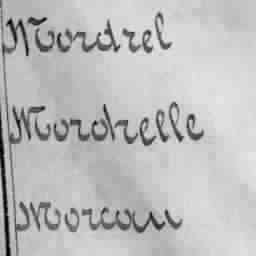 Mordrel
Mordrelle
Morcau